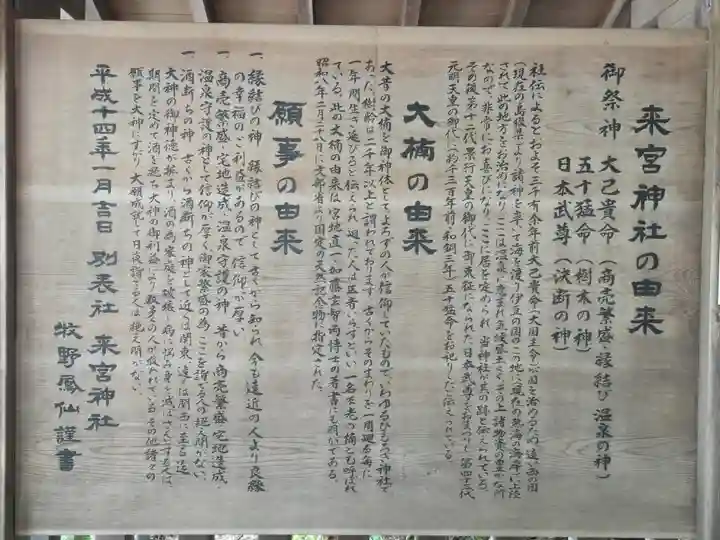 来宮神社の由来
御祭神 大己貴命（商売繁盛・縁結び・温泉の神）
五十猛命（樹木の神）
日本武尊（決断の神）
社伝によるとおよそ三千有余年前大己貴命（大国主命）が国を治めるため、遠い西の国
（現在の島根県）より諸神を率いて海を渡り伊豆の国のこの地に（現在の熱海の海岸）に上陸
されて此の地方をお治めになり、ここは温泉に恵まれ
なので、非常にお喜びになり、ここに居を定められ、当神社が其の跡と伝えられている。
その後第十二代景行天皇の御代に御東征になられた日本武尊を
元明天皇の御代（約千三百年前・和銅三年）五十猛命をお祀りしたと伝えられている。
大楠の由来
大昔の大楠を御神体としてよろずの人が信仰していたもので、いわゆるひもろぎ神社で
あった。樹齢は二千年以上と謂われております 古くからそのまわりを一周廻る毎に
一年間生き延びると伝えられ、廻った人は医者いらずといい、一名不老の楠とも呼ばれ
ている。此の大楠の由来は、宮地直一・加藤玄智両博士の著書にも書いてある。
昭和八年二月二十八日に文部省より国定の天然記念物に指定された。
願事の由来
一、縁結びの神 縁結びの神として古くから知られ、今も遠近の人より良縁
の幸福のご利益があるので、信仰が厚い
一、商売繁盛・宅地造成・温泉守護の神 昔から商売繁盛・宅地造成・
温泉守護の神として信仰が厚く御家繁盛の為ここを詣でる人の絶え間がない。
一、酒断ちの神 古くから酒断ちの神として近くは関東、遠くは関西に至る迄
大神の御神徳が集まり、酒の為家庭を破壊し病に悩み身を滅ぼさんとする人は、
期間を定めて酒を絶ち大神の御利益により数多の人が救われている。その他諸々の
願事を大神にすがり大願成就して日夜詣でる人は絶え間がない。
平成十四年一月吉日 別表社 来宮神社
牧野鳳仙謹書